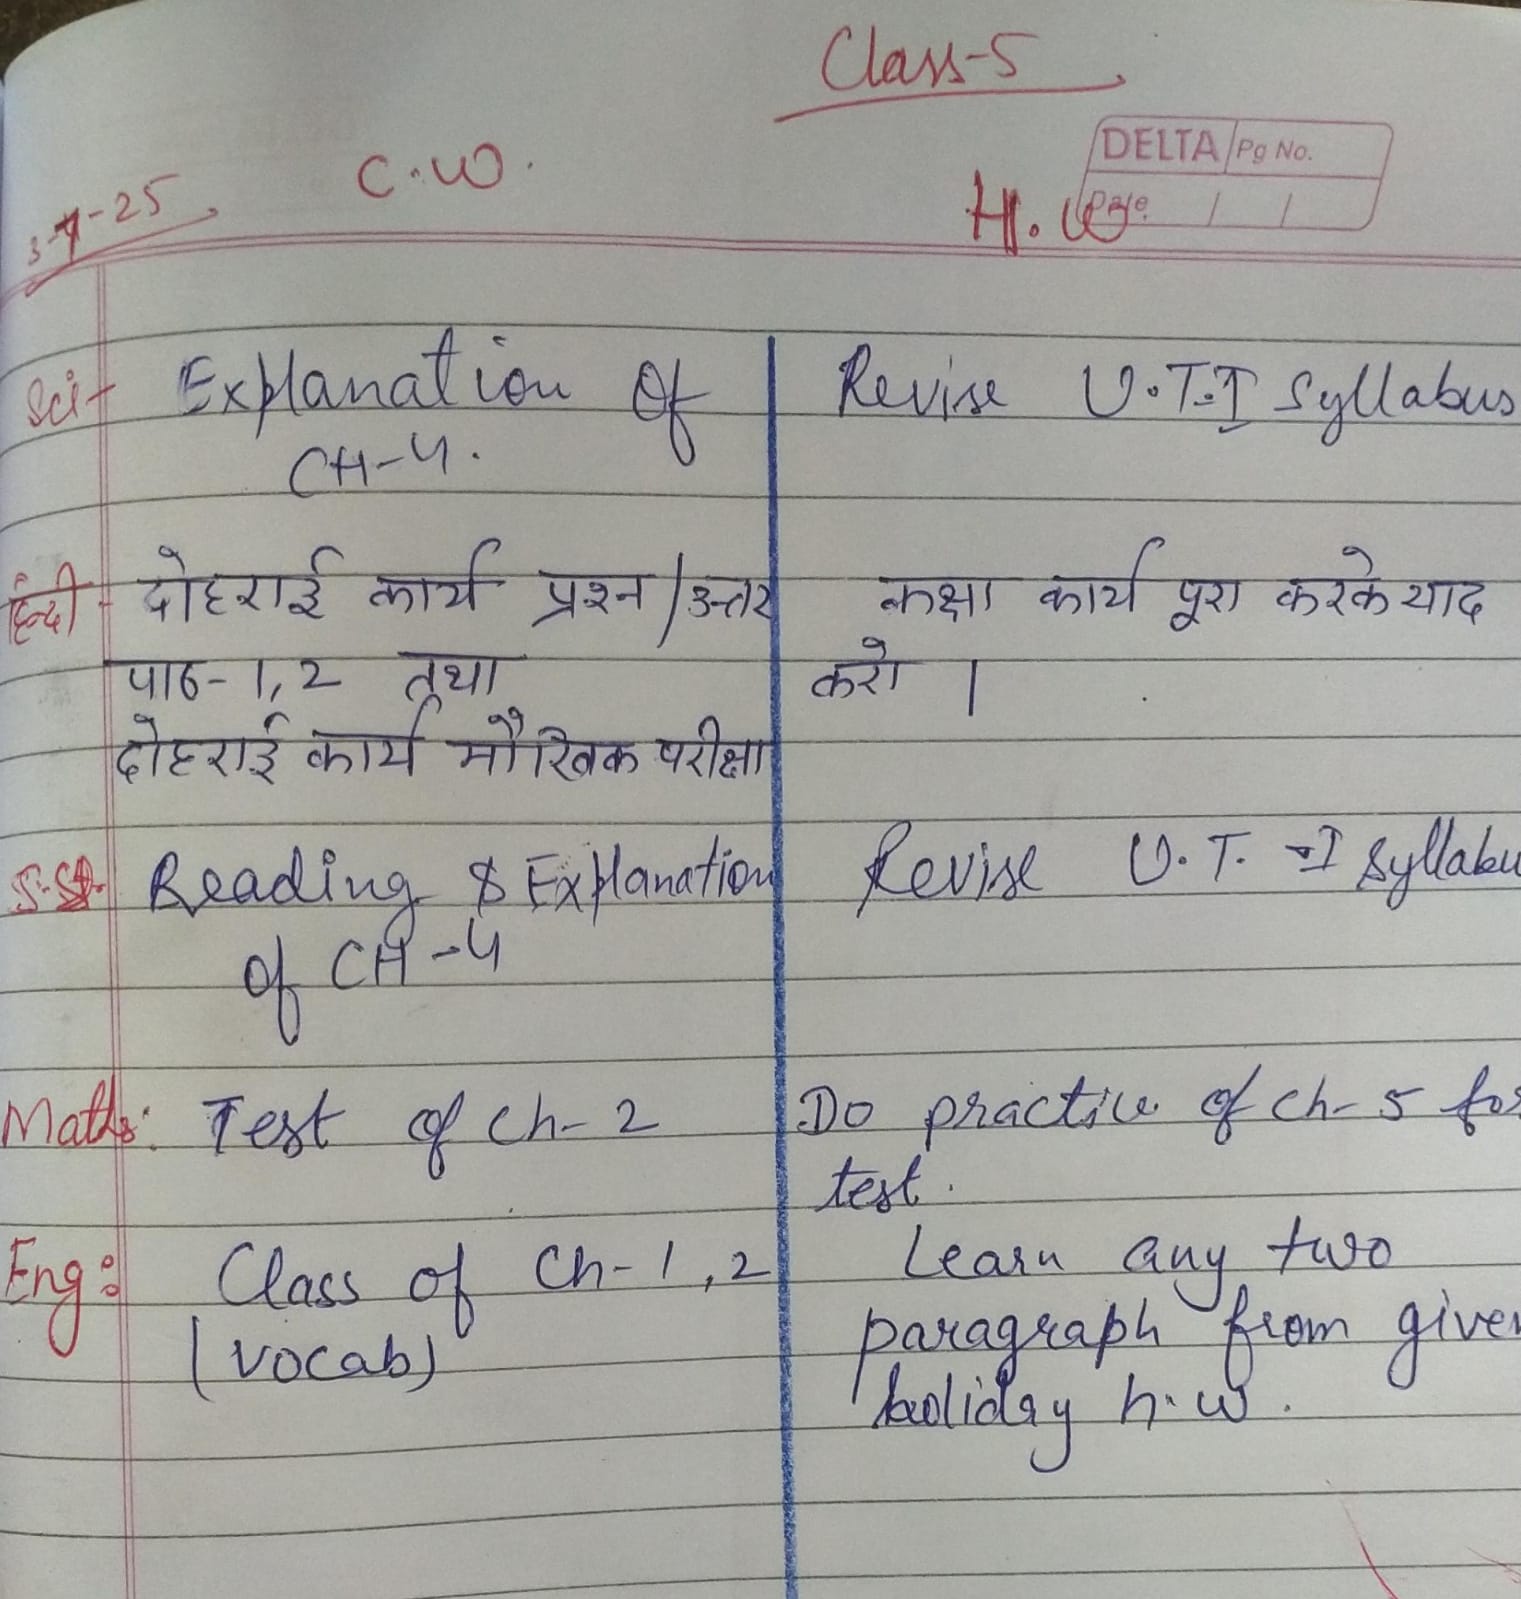 Class-5
DELTA Pg No.
Date / /
3-7-25 C.W. H.W
Sci- Explanation Of Revise U.T.I Syllabus
CH-4.
हिन्दी- दोहराई कार्य प्रश्न/उत्तर कक्षा कार्य पूरा करके याद
पाठ-1,2 तथा करो।
दोहराई कार्य मौखिक परीक्षा
S.St- Reading & Explanation Revise U.T.-I Syllabu
of CH-4
Maths: Test of Ch-2 Do practice of Ch-5 for
test.
Eng: Class of Ch-1,2 Learn any two
(vocab) paragraph from given
holiday h.w.